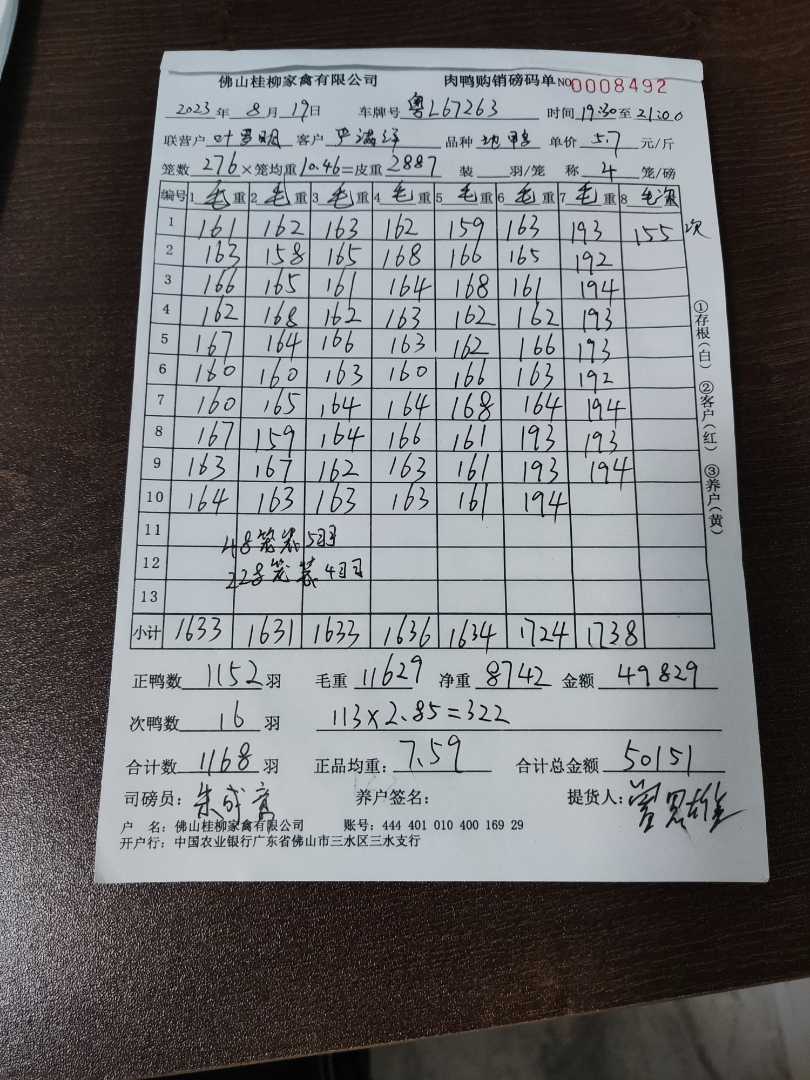 佛山桂柳家禽有限公司 肉鸭购销磅码单 NO 0008492
2023年 8月 19日 车牌号 粤L67263 时间 19:30至 21:00
联营户 叶 客户 严满洋 品种 单价 5.7 元/斤
笼数 276×笼均重 10.46=皮重 2887 装 羽/笼 称 4 笼/磅
编号 1 毛重 2 毛重 3 毛重 4 毛重 5 毛重 6 毛重 7 毛重 8 毛重
1 161 162 163 162 159 163 193 155 次
2 163 158 165 168 166 165 192
3 166 165 161 164 168 161 194
4 162 168 162 163 162 162 193
5 167 164 166 163 162 166 193
6 160 160 163 160 166 163 192
7 160 165 164 164 168 164 194
8 167 159 164 166 161 193 193
9 163 167 162 163 161 193 194
10 164 163 163 163 161 194
11
48笼装5羽
12
228笼装4羽
13
小计 1633 1631 1633 1636 1634 1724 1738
正鸭数 1152 羽 毛重 11629 净重 8742 金额 49829
次鸭数 16 羽 113×2.85=322
合计数 1168 羽 正品均重: 7.59 合计总金额 50151
司磅员: 朱成 养户签名: 提货人:
户 名: 佛山桂柳家禽有限公司 账号: 444 401 010 400 169 29
开户行: 中国农业银行广东省佛山市三水区三水支行
①存根(白) ②客户(红) ③养户(黄)